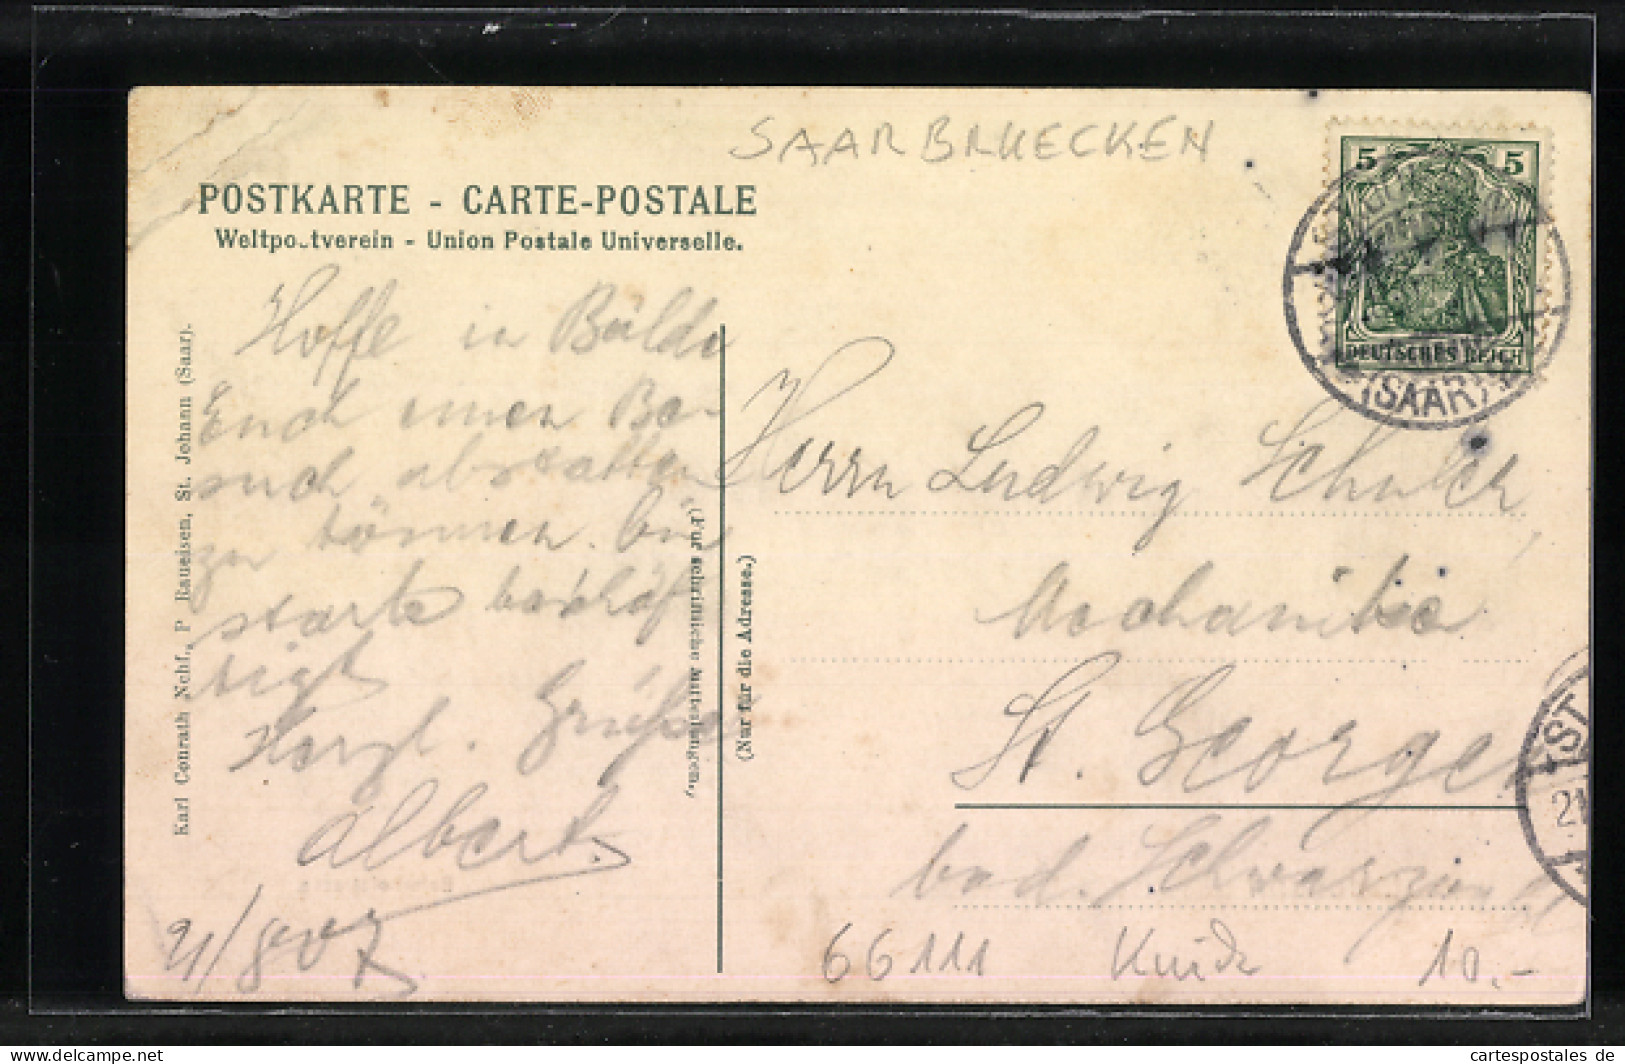 SAARBRUECKEN
POSTKARTE - CARTE-POSTALE
Weltpostverein - Union Postale Universelle.
Hoffe in Bälde
Euch einen Be-
such abstatten
zu können. bin
starke beschäf
tigt
Herzl. Grüsse
Albert.
21/8 07
Karl Conrath Nchf., P Raueisen, St. Johann (Saar).
(Für schriftliche Mitteilungen)
(Nur für die Adresse.)
5 5
DEUTSCHES REICH
(SAAR)
Herrn Ludwig Schuler
Mechaniker
St. Georgen
bad. Schwarzwald
ST.
21
66111 Knick 10.-
cartespostales de